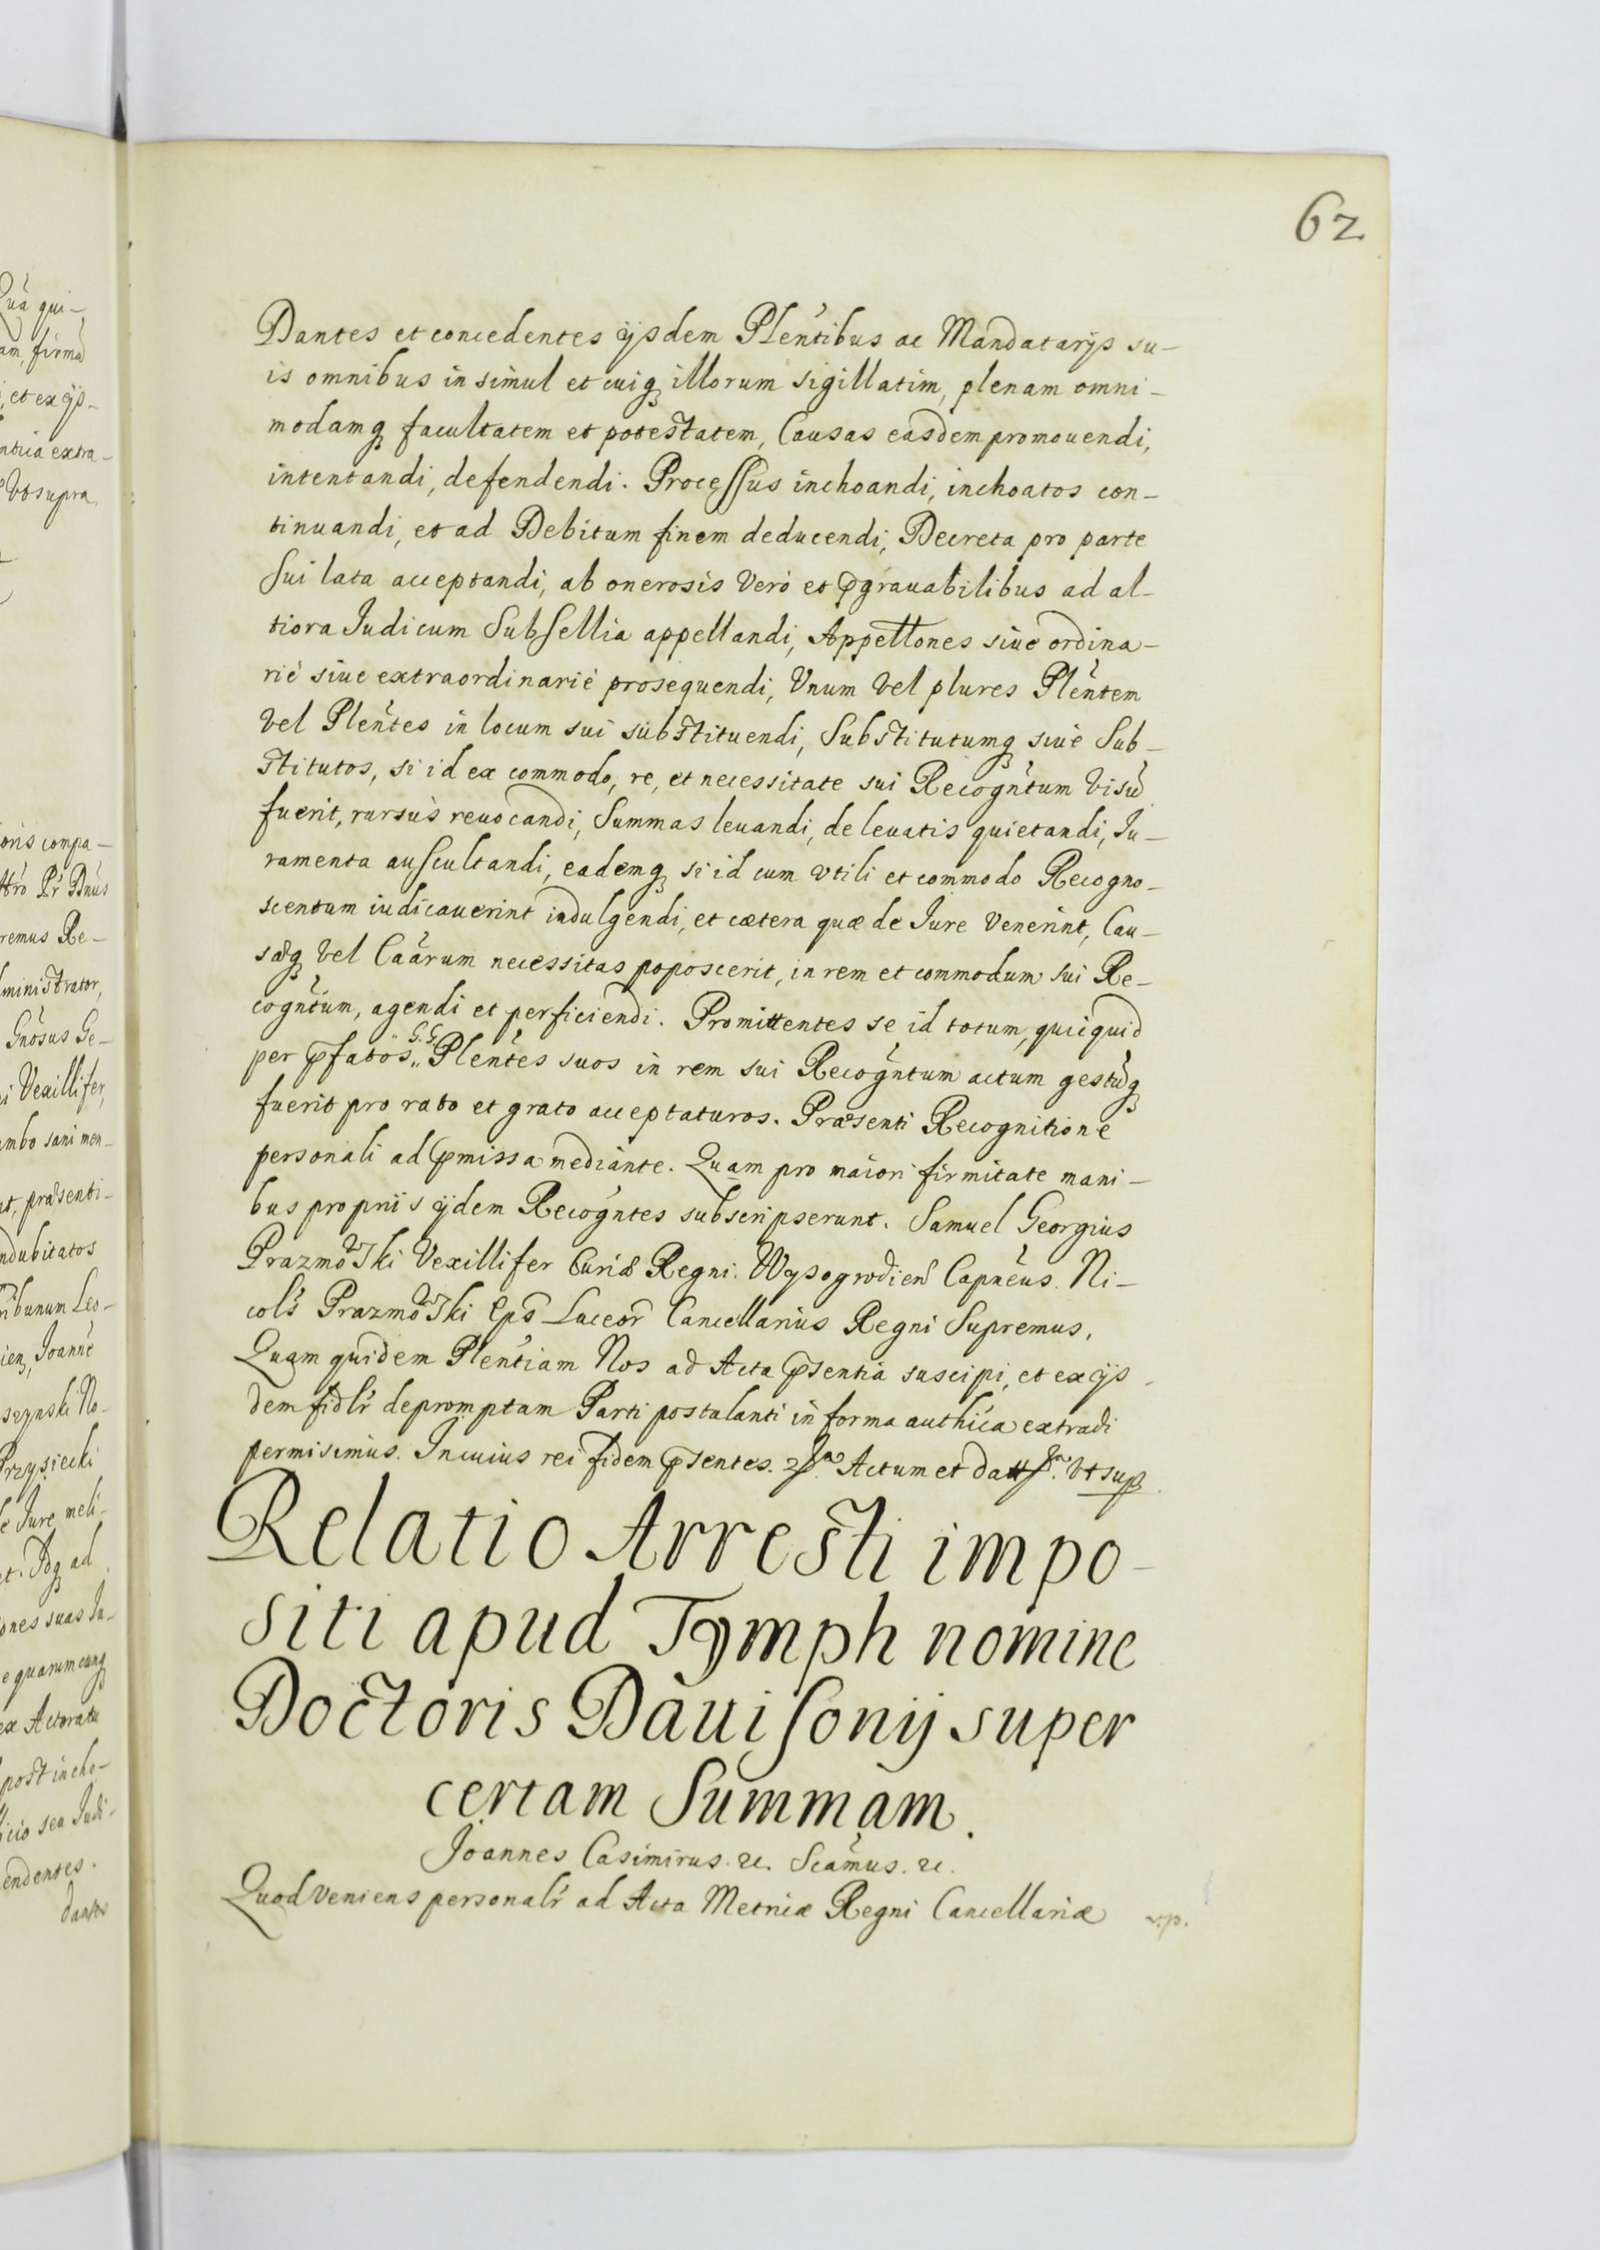 62
Dantes et concedentes ijsdem Plentibus ac Mandatarijs su-
is omnibus in simul et cuiq illorum sigillatim, plenam omni-
modamq facultatem et potestatem, Causas easdem promouendi,
intentandi, defendendi. Processus inchoandi, inchoatos con-
tinuandi, et ad Debitum finem deducendi, Decreta pro parte
Sui lata acceptandi, ab onerosis Verò et pgrauabilibus ad al-
tiora Iudicum Subsellia appellandi, Appellones siue ordina-
riè siue extraordinariè prosequendi, Vnum Vel plures Plentem
Vel Plentes in locum sui substituendi, Substitutumq siue Sub-
stitutos, si id ex commodo, re, et necessitate sui Recogntum Visu
fuerit, rursus reuocandi, Summas leuandi, de leuatis quietandi, Iu-
ramenta auscultandi, eademq si id cum Vtili et commodo Recogno-
scentum iudicauerint indulgendi, et cætera quæ de Iure Venerint, Cau-
sæq Vel Caarum necessitas poposcerit, in rem et commodum sui Re-
cogntum, agendi et perficiendi. Promittentes se id totum, quicquid
per pfatos G.G. Plentes suos in rem sui Recogntum actum gestuq
fuerit pro rato et grato acceptaturos. Præsenti Recognitione
personali ad pmissa mediante. Quam pro maiori firmitate mani-
bus proprijs ijdem Recogntes subscripserunt. Samuel Georgius
Prazmowski Vexillifer Curiæ Regni. Wysogrodien Capneus. Ni-
cols Prazmowski Eps Luceor Cancellarius Regni Supremus.
Quam quidem Plentiam Nos ad Acta psentia suscipi, et ex ijs-
dem fidlr depromptam Parti postulanti in forma authica extradi
permisimus. In cuius rei fidem psentes. Actum et datt Vt sup.
Relatio Arresti impo-
siti apud Tymph nomine
Doctoris Dauisonij super
certam Summam.
Joannes Casimirus. &. Scamus. &.
Quod Veniens personalr ad Acta Metricæ Regni Cancellariæ
Qua qui-
am, firma
et ex ijs-
extra-
Vt supra.
compa-
Dnus
remus Re-
ministrator,
Gnosus Ge-
Vexillifer,
ambo sani men-
præsenti-
ndubitatos
ribunum Leo-
Joanne
No-
Przysiecki
Iure meli-
ad
ones suas In-
quarumcunq
ex Actoratu
post incho-
icio seu Iudi-
endentes.
Dantes